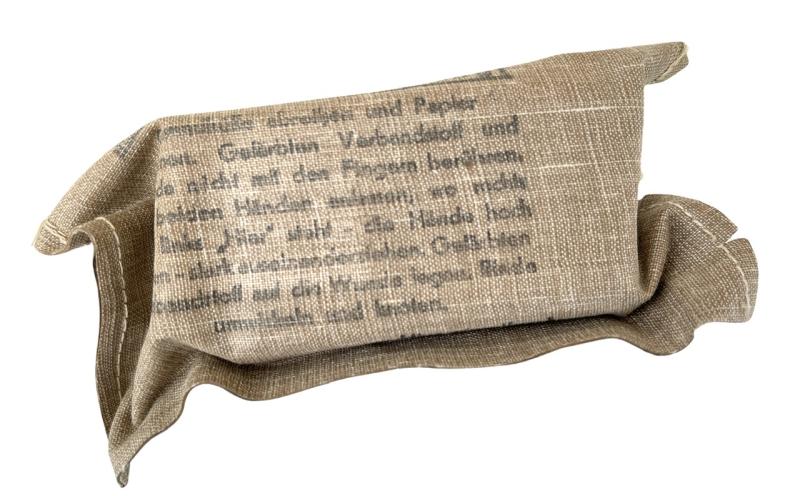 abreißen und Papier
Gefärbten Verbandstoff und
nicht mit den Fingern berühren.
beiden Händen anfassen, wo rechts
links „Hier“ steht – die Hände hoch
– stark auseinanderziehen. Gefärbten
bandstoff auf die Wunde legen. Binde
umwickeln und knoten.